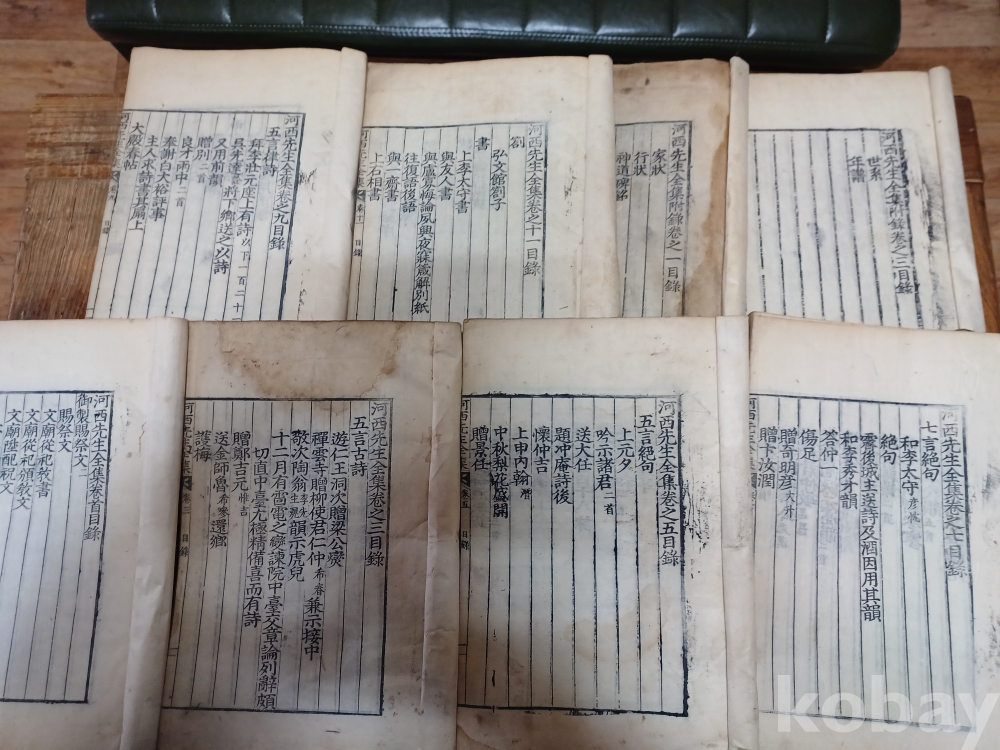 河西先生全集卷之九目錄
五言律詩
拜李壯元座上有詩以下一百二十一
將下鄉送之以詩
又用前韻
贈別
良才丙申二首
奉謝白大裕評事
主人求詩書其扇上
大殿春帖
目錄
河西先生全集卷之十一目錄
劄
弘文館劄子
書
上李太守書
與友人書
與盧寡悔論夙興夜寐箴解別紙
往復後語
與一齋書
上右相書
目錄
河西先生全集附錄卷之一目錄
家狀
行狀
神道碑銘
河西先生全集附錄卷之三目錄
世系
年譜
河西先生全集卷首目錄
御製賜祭文
賜祭文
文廟從祀敎書
文廟從祀頒敎文
文廟陞配祝文
河西先生全集卷之三目錄
五言古詩
遊仁王洞次贈梁公燮
禪雲寺贈柳使君仁仲希春兼示接中
敬次陶翁韻示虎兒
十二月有雷電之變諫院中臺交章論列辭頗
切直中臺尤極精備喜而有詩
贈鄭吉元惟吉
送金師魯希參還鄉
護梅
河西先生全集卷之五目錄
五言絕句
上元夕
吟示諸君二首
送大任
題冲庵詩後
懷仲吉
上申內翰
中秋梨花盛開
贈景任
卷五
目錄
河西先生全集卷之七目錄
七言絕句
和李太守
絕句
靈後城主送詩及酒因用其韻
和李秀才韻
答仲一
傷足
贈奇明彥大升
贈卞汝潤
kobay